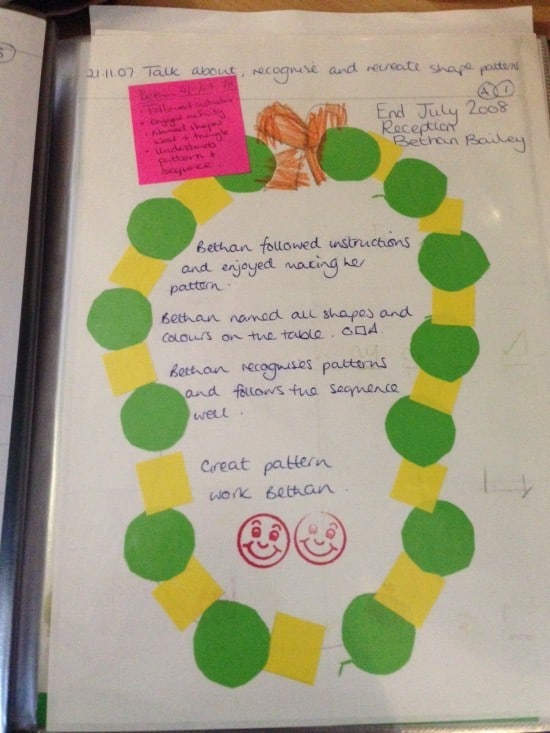 21.11.07 Talk about, recognise and recreate shape patterns
A 1
End July 2008
Reception
Bethan Bailey
Bethan
• Followed instructions
• Enjoyed activity
• Named shapes
• Understands
pattern &
sequence
Bethan followed instructions
and enjoyed making her
pattern.
Bethan named all shapes and
colours on the table. ○□△
Bethan recognises patterns
and follows the sequence
well.
Great pattern
work Bethan.